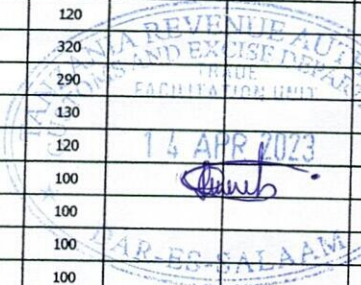 120
320
290
130
120
100
100
100
100
TANZANIA REVENUE AUT
CUSTOMS AND EXCISE DEPAR
TRADE
FACILITATION UNIT
14 APR 2023
DAR-ES-SALAAM